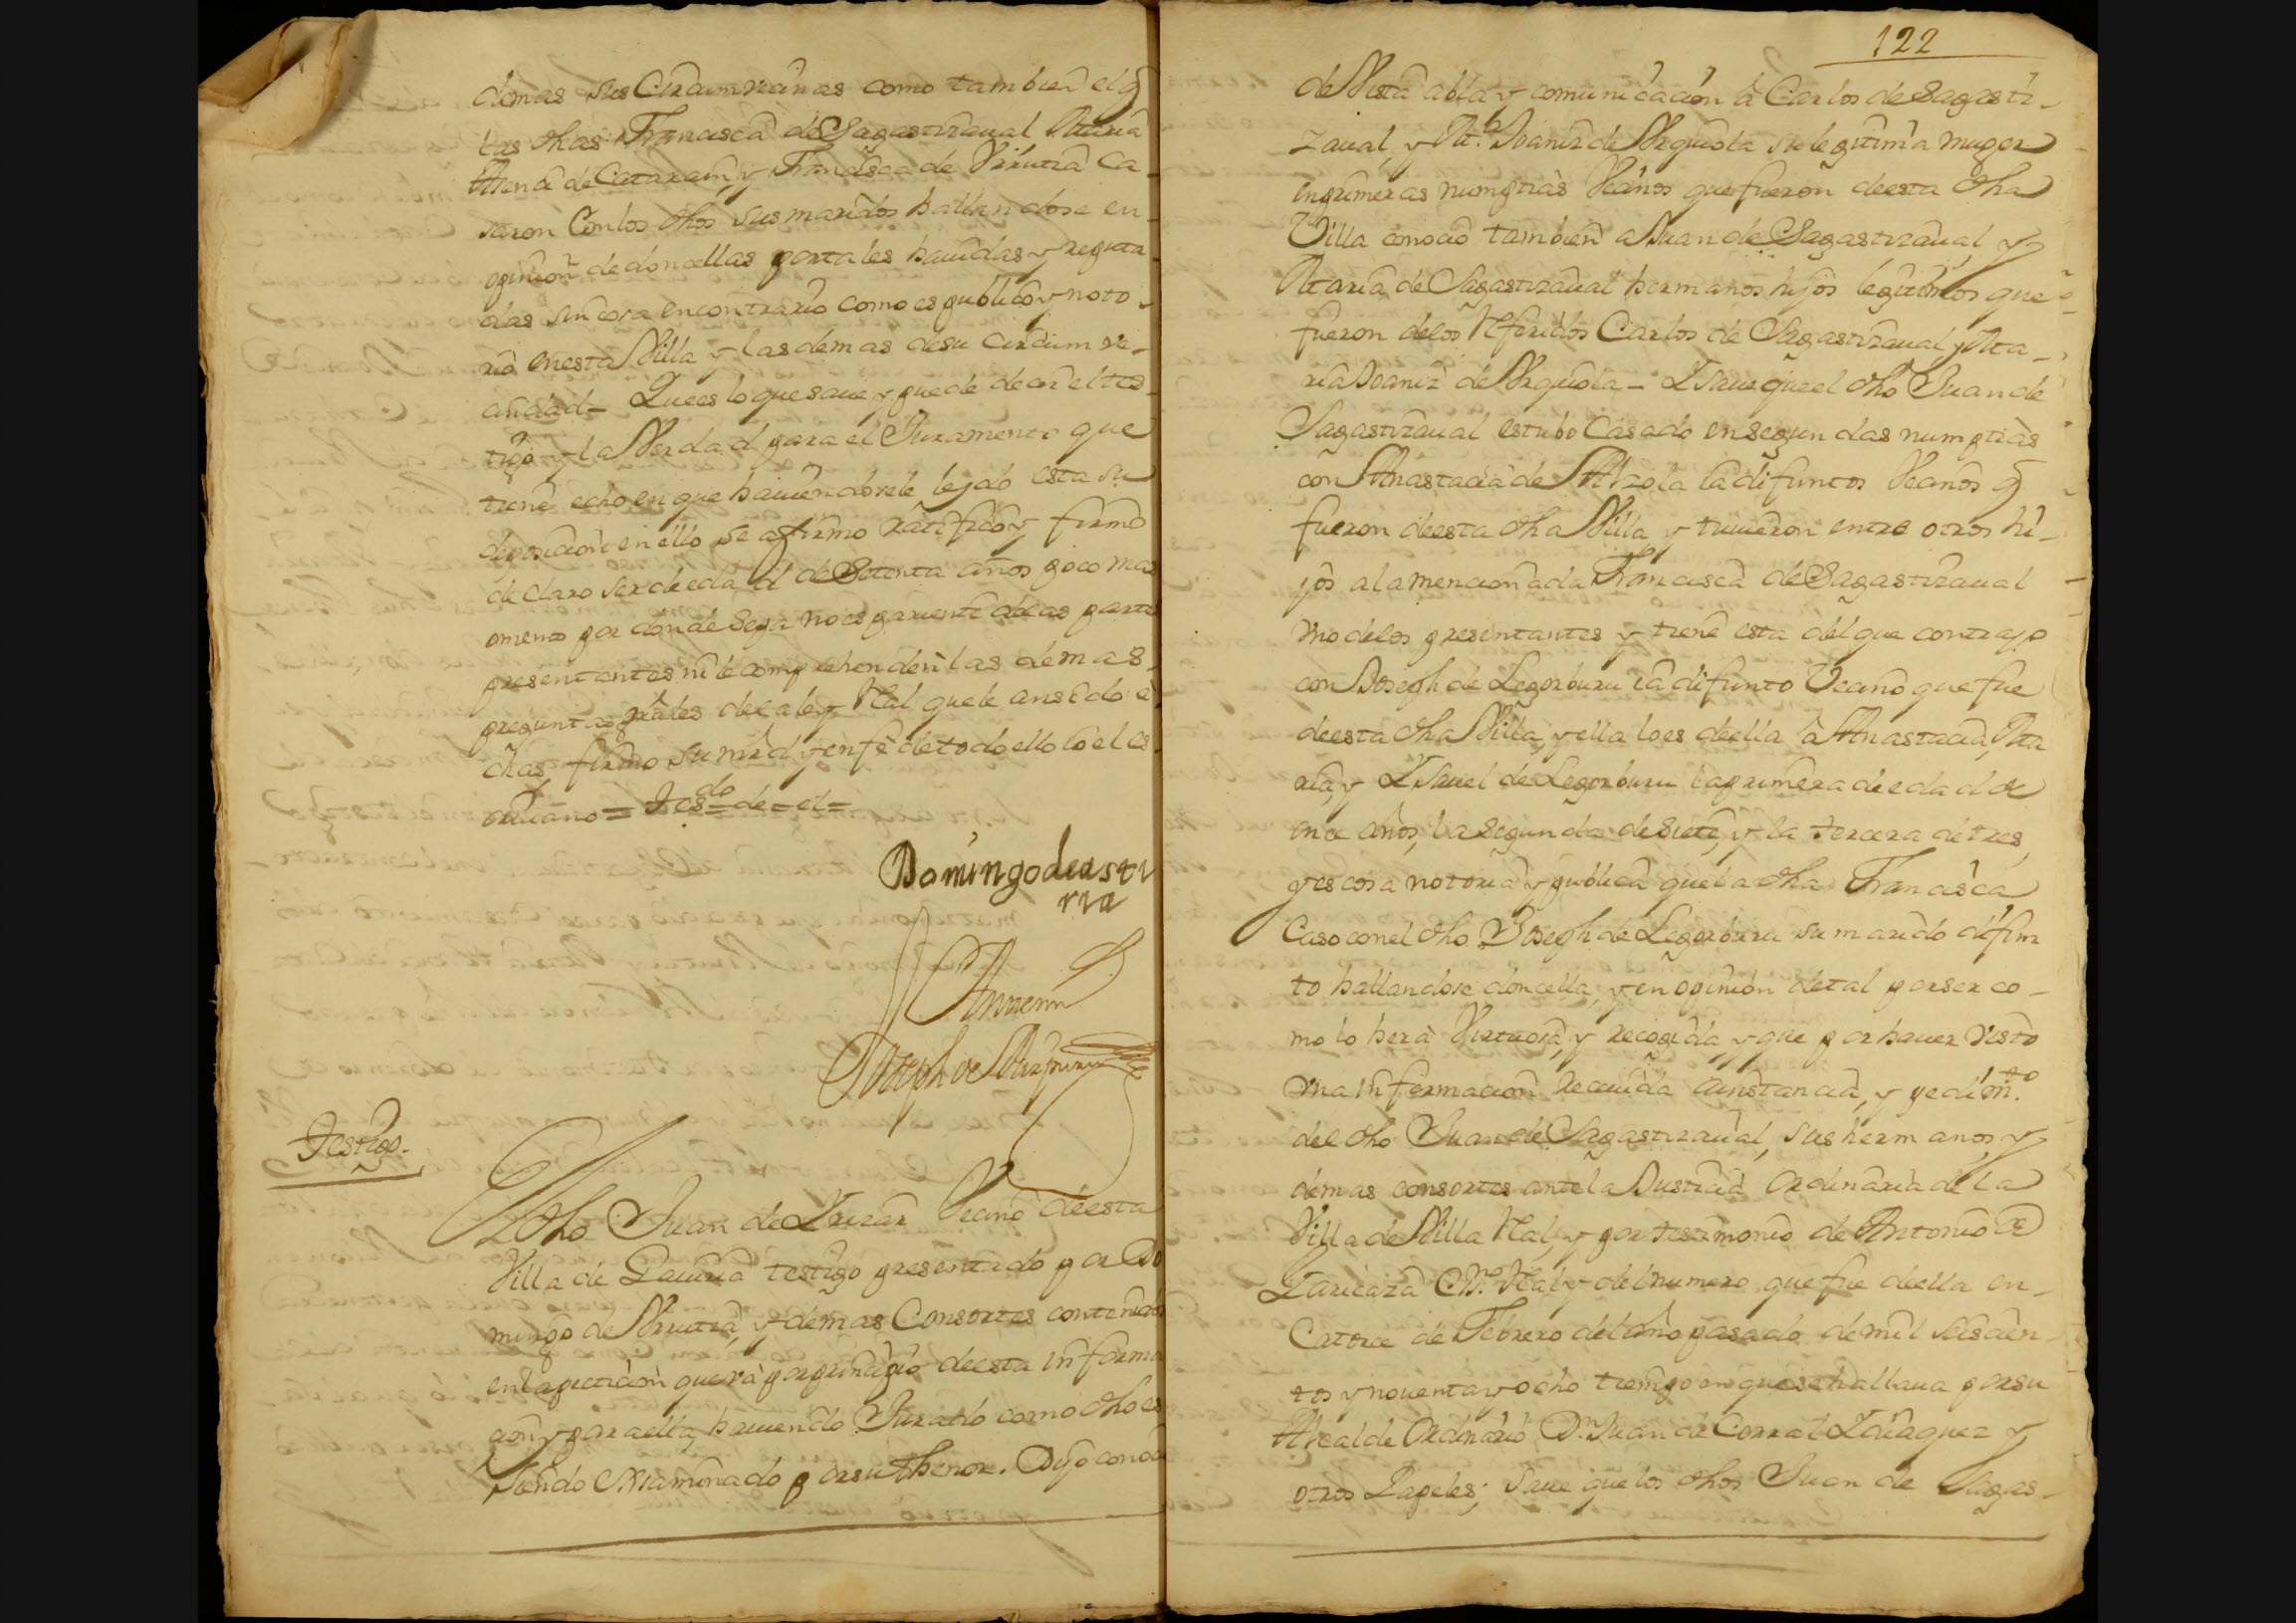 demas sus Circumvecinas como tambien el q̃
las dhas Francisca de Sagastizaual Maria
Atena de Catarain, y Francisca de Vrrutia Ca-
saron Con los dhos sus maridos hallandose en
opinion de doncellas por tales hauidas y reputa
das sin cosa en contrario como es publico y noto-
rio en esta Villa y las demas de su circumve-
cindad- Que es lo que saue y puede decir el tes
tigo y la Verdad para el Juramento que
tiene echo en que hauiendosele leydo esta su
deposicion en ello se afirmo ratifico y firmo
declaro ser de edad de Setenta años poco mas
o menos por donde Sepa no es pariente de las partes
presentantes ni le comprehenden las demas
preguntas grâles de la ley Real que le an sido e
chas, firmo su mrd y en fê de todo ello io el es
criuano = Tes do = de = el =
Domingo de asti
rria
Ante mi
Joseph de
Testigo.
El dho Juan de Yrizar Vecino de esta
Villa de Zauiria testigo presentado por Do
mingo de Vrrutia, y demas Consortes contenidos
en la peticion que và por principio de esta informa
cion y para ella, hauiendo Jurado como dho es
siendo examinado por su thenor. Dijo conoció
122
de Vista abla y comunicacion à Carlos de Sagasti-
zaual, y M.ª Ioaniz de Vrquiola su legitima muger
en primeras numptias Vecinos que fueron de esta dha
Villa conocio tambien a Juan de Sagastizaual, y
Maria de Sagastizaual hermanos hijos legitimos que
fueron de los Referidos Carlos de Sagastizaual, y Ma-
ria Ioaniz de Vrquiola - Y saue que el dho Juan de
Sagastizaual estubo Casado en segundas numptias
con Anastacia de Alzola ia difuntos Vecinos q̃
fueron de esta dha Villa y tuuieron entre otros hi-
jos a la mencionada Francisca de Sagastizaual
vno de los presentantes y tiene esta del que contrajo
con Joseph de Legorburu ia difunto Vecino que fue
de esta dha Villa, y ella lo es de ella â Anastacia, Ma
ria, y Ysauel de Legorburu la primera de edad de
once años, la segunda de siete, y la tercera de tres,
y es cosa notoria y publica que la dha Francisca
Caso con el dho Joseph de Legorburu su marido difun
to hallandose doncella, y en opinion de tal por ser co-
mo lo hera Virtuosa, y recogida, y que por hauer visto
vna informacion reciuida a instancia, y pedim.to
del dho Juan de Sagastizaual, sus hermanos, y
demas consortes ante la Justicia Ordinaria de la
Villa de Villa Real, y por testimonio de Antonio de
Laricaza Ss.no Real y del numero que fue de ella en
Catorce de Febrero del año pasado de mil seiscien-
tos y nouenta y ocho tiempo en que se hallaua por su
Alcalde Ordinario D.n Juan de Corral Ydiaquez y
otros Papeles; saue que los dhos Juan de Sagas-